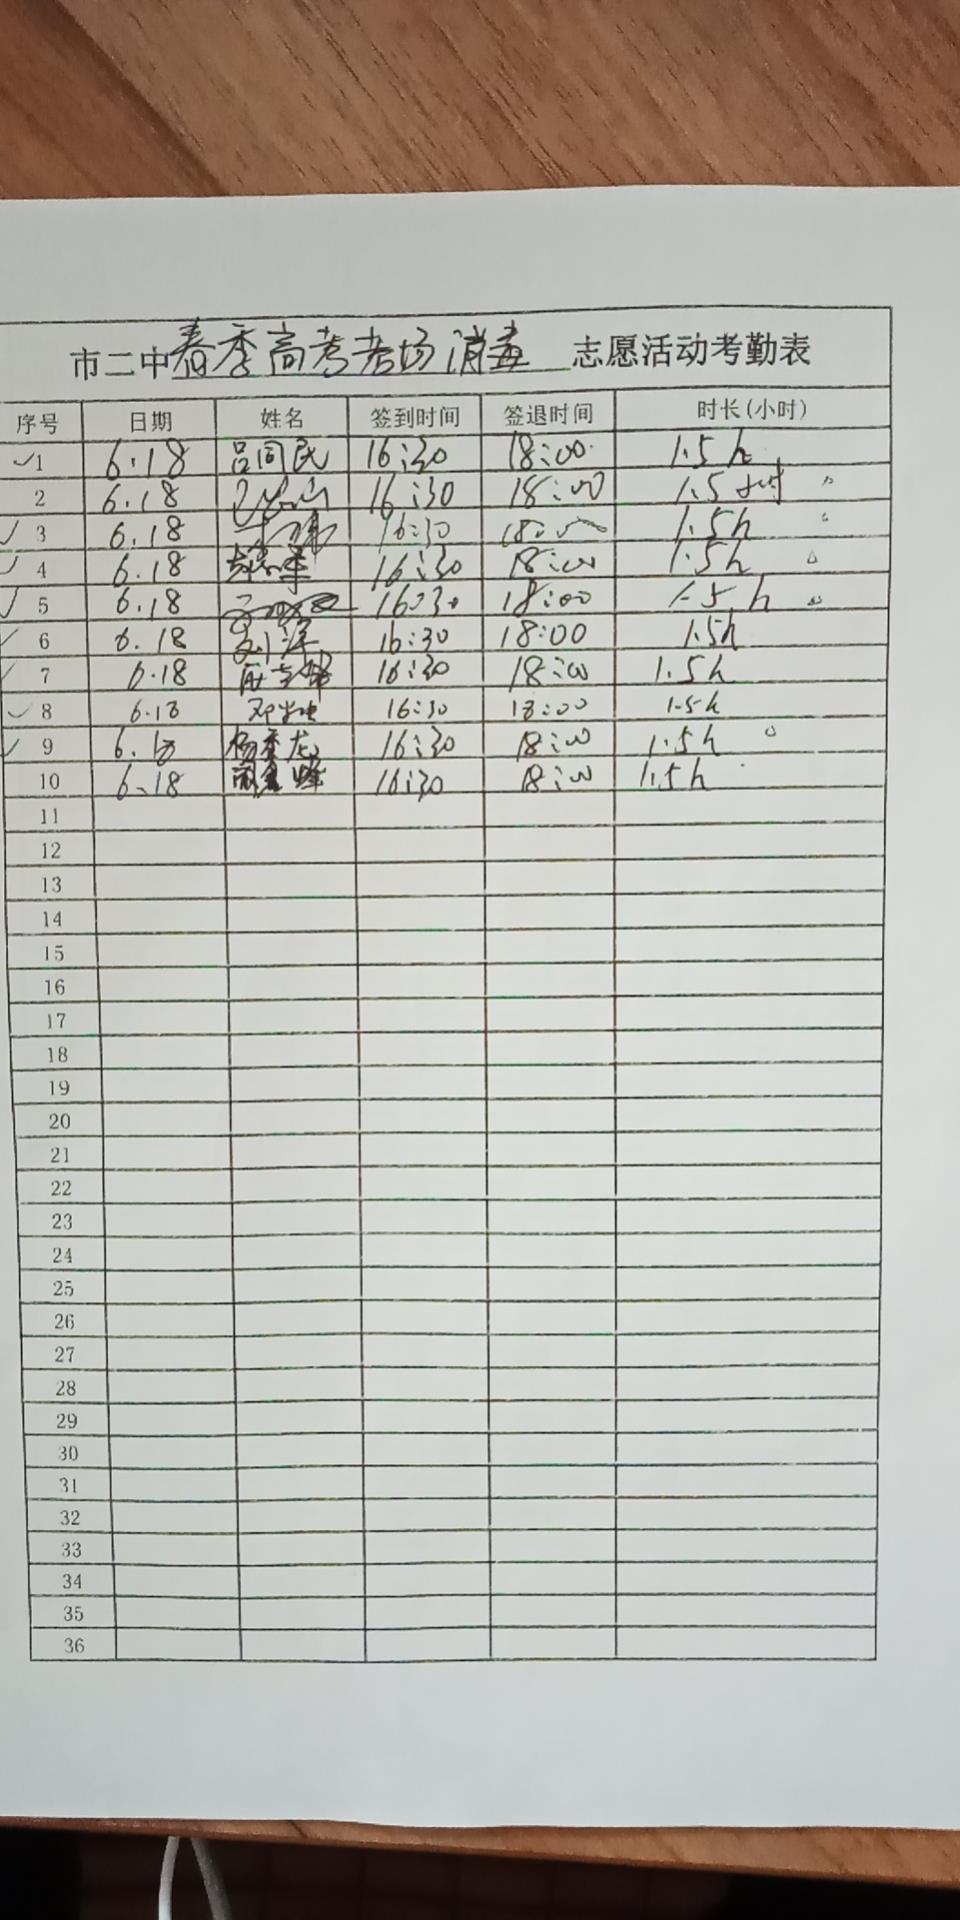 市二中春季高考考场消毒 志愿活动考勤表
序号 日期 姓名 签到时间 签退时间 时长(小时)
✓1 6.18 吕同民 16:30 18:00 1.5h
2 6.18 16:30 18:00 1.5小时
✓3 6.18 16:30 1.5h
✓4 6.18 16:30 18:00 1.5h
✓5 6.18 16:30 18:00 1.5h
✓6 6.18 刘洋 16:30 18:00 1.5h
✓7 6.18 16:30 18:00 1.5h
✓8 6.18 16:30 18:00 1.5h
✓9 6.18 杨秀龙 16:30 18:00 1.5h
10 6.18 16:30 18:00 1.5h
11
12
13
14
15
16
17
18
19
20
21
22
23
24
25
26
27
28
29
30
31
32
33
34
35
36